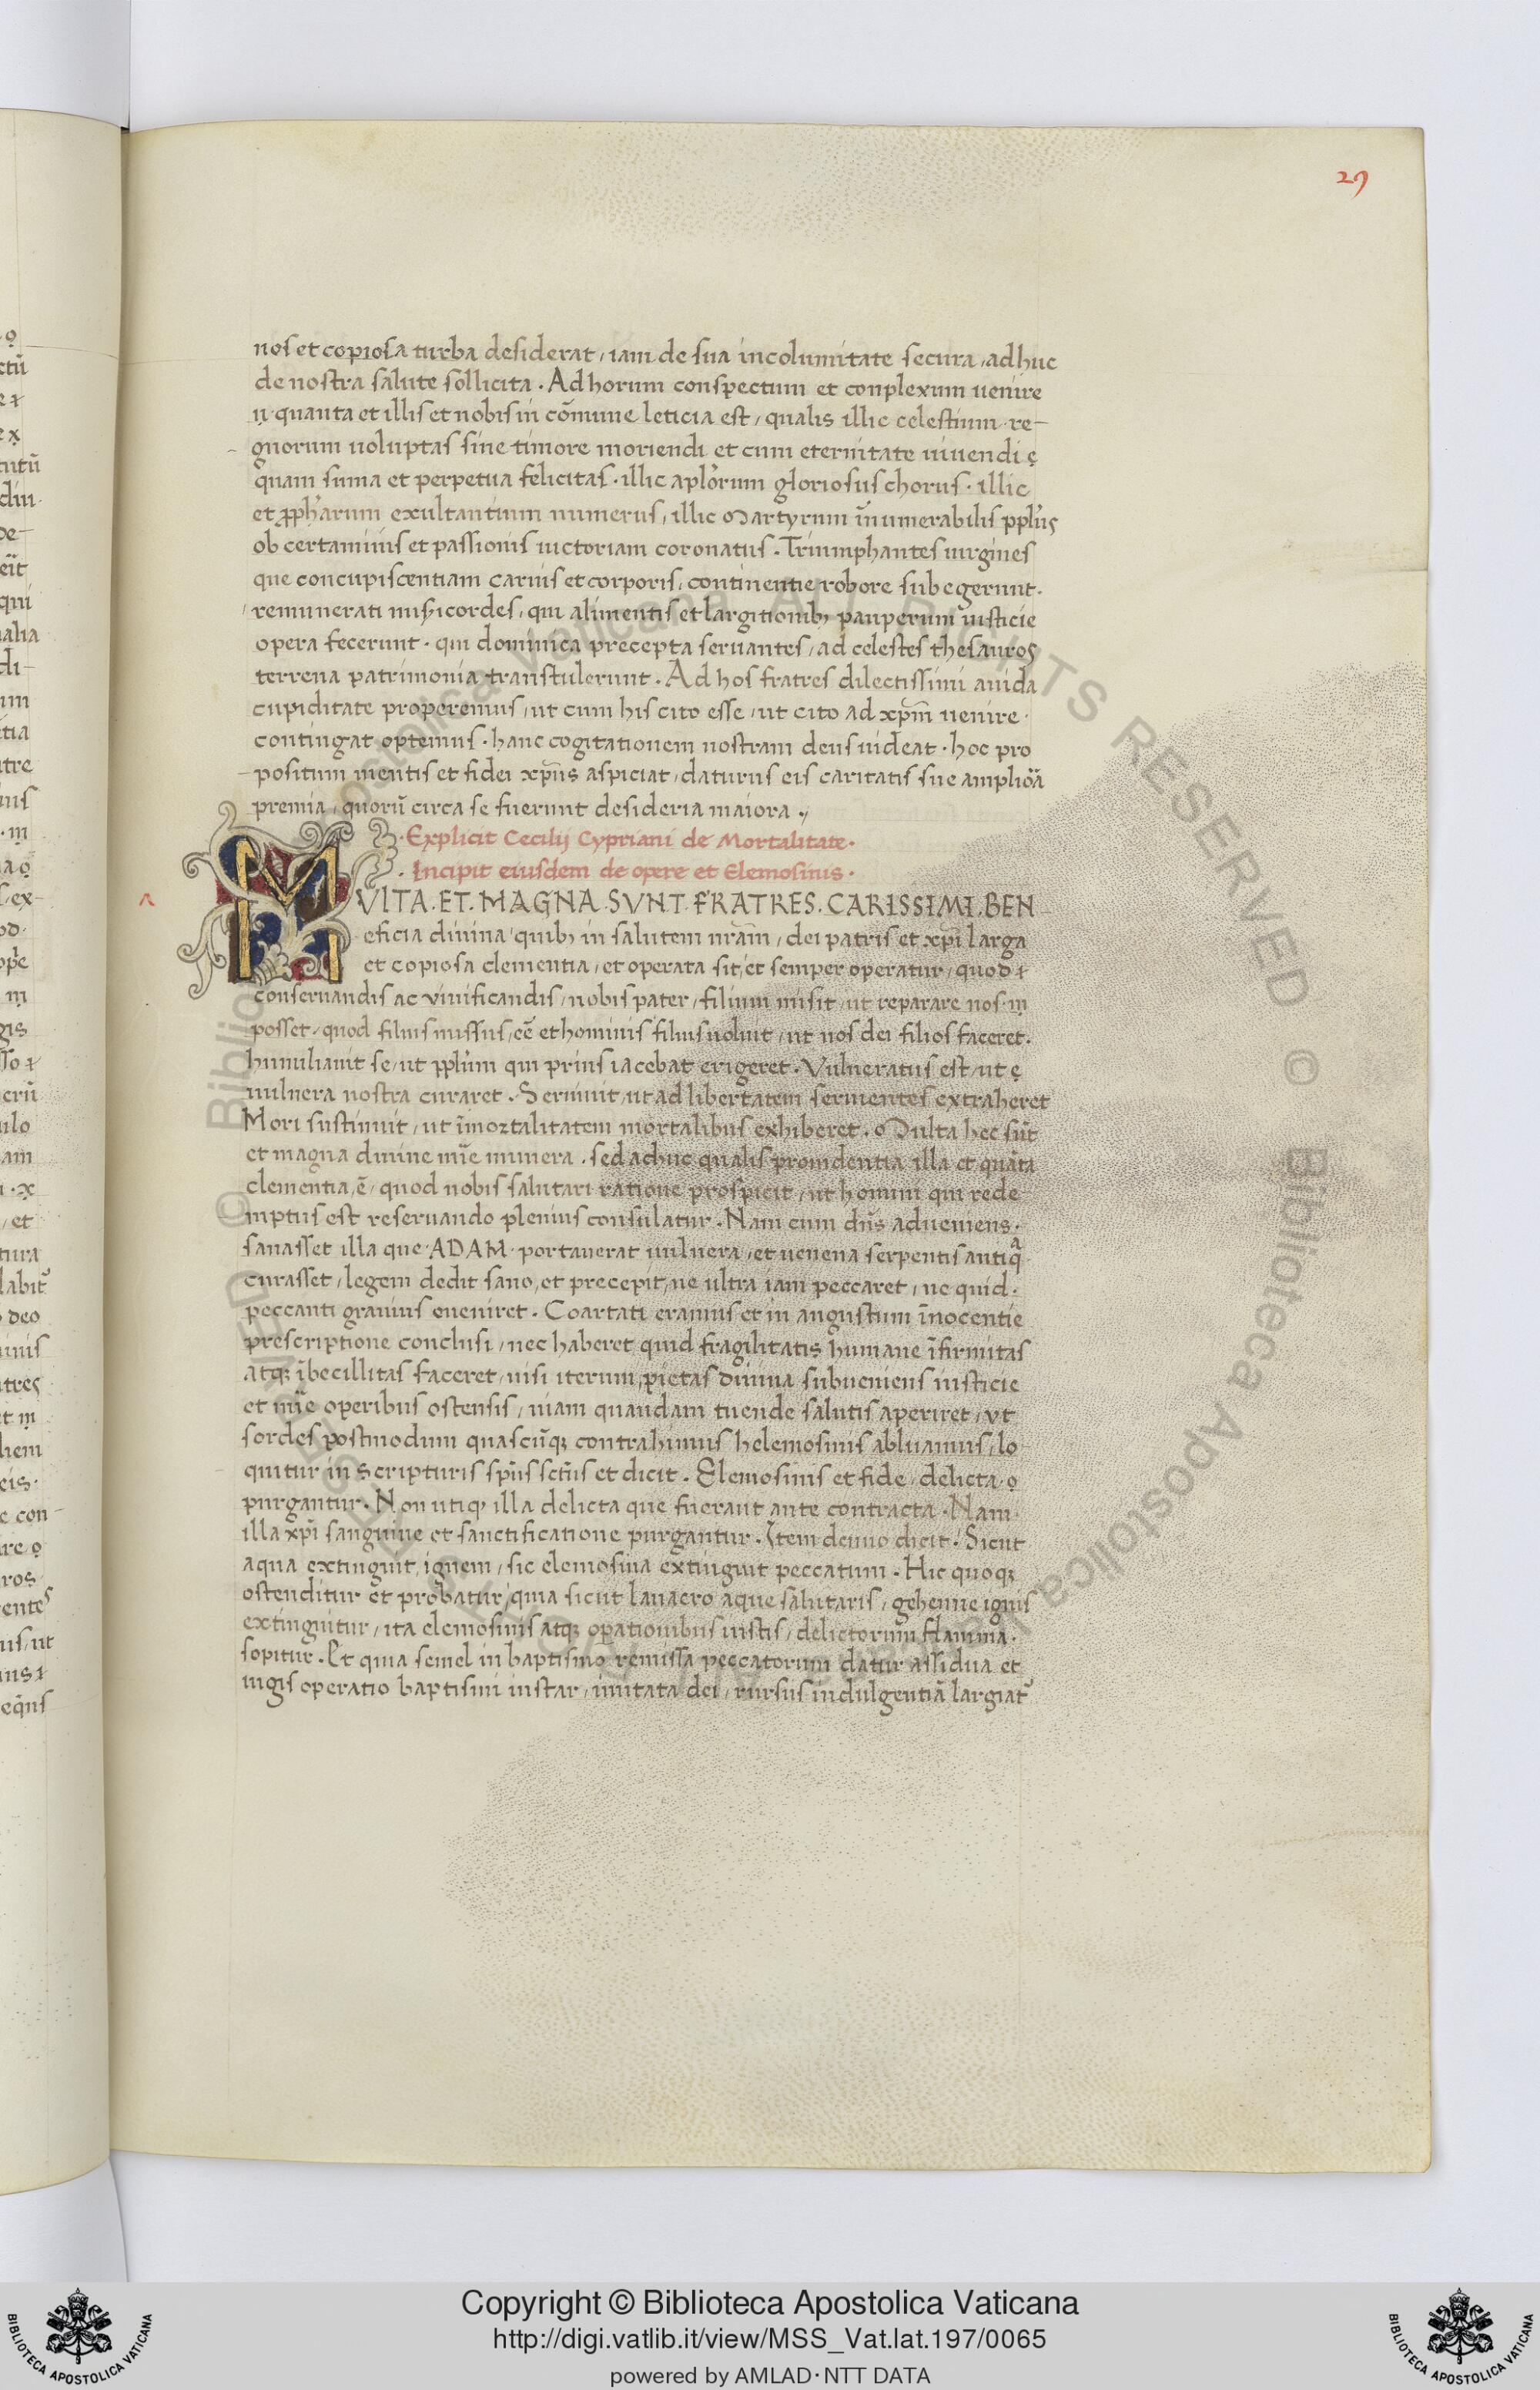 29
nos et copiosa turba desiderat, iam de sua incolumitate secura, adhuc
de nostra salute sollicita. Ad horum conspectum et conplexum uenire
quanta et illis et nobis in cōmune leticia est, qualis illic celestium re-
gnorum uoluptas sine timore moriendi et cum eternitate uiuendi
quam suma et perpetua felicitas. illic aplo᷒rum gloriosus chorus. illic
et ꝓpharum exultantium numerus, illic Martyrum īnumerabilis ppl᷒us
ob certaminis et passionis uictoriam coronatus. Triumphantes uirgines
que concupiscentiam carnis et corporis, continentie robore subegerunt.
remunerati misericordes, qui alimentis et largitionibꝫ pauperum iusticie
opera fecerunt. qui dominica precepta seruantes, ad celestes thesauros
terrena patrimonia transtulerunt. Ad hos fratres dilectissimi auida
cupiditate properemus, ut cum his cito esse, ut cito ad xp̄m uenire
contingat optemus. hanc cogitationem nostram deus uideat. hoc pro
positum mentis et fidei xp̄us aspiciat, daturus eis caritatis sue ampliōa
premia, quorū circa se fuerunt desideria maiora.
.Explicit Cecilij Cypriani de Mortalitate.
.Incipit eiusdem de opere et Elemosinis.
MVLTA.ET.MAGNA.SVNT.FRATRES.CARISSIMI.BEN
eficia diuina quibꝫ in salutem nr̄am, dei patris et xp̄i larga
et copiosa clementia, et operata sit, et semper operatur, quod
conseruandis ac viuificandis, nobis pater, filium misit, ut reparare nos
posset, quod filius missus, eē et hominis filius uoluit, ut nos dei filios faceret.
humiliauit se, ut ppl᷒um qui prius iacebat erigeret. Vulneratus est, ut
uulnera nostra curaret. Seruiuit, ut ad libertatem seruientes extraheret
Mori sustinuit, ut īmortalitatem mortalibus exhiberet. Multa hec sūt
et magna diuine mīe munera. sed adhuc qualis prouidentia illa et quāta
clementia, ē, quod nobis salutari ratione prospicit, ut homini qui rede
mptus est reseruando plenius consulatur. Nam cum dn̄s adueniens.
sanasset illa que ADAM portauerat uulnera, et uenena serpentis antiqa
curasset, legem dedit sano, et precepit, ne ultra iam peccaret, ne quid.
peccanti grauius eueniret. Coartati eramus et in angustum īnocentie
prescriptione conclusi, nec haberet quid fragilitatis humane īfirmitas
atqꝫ ībecillitas faceret, nisi iterum, pietas diuina subueniens iusticie
et mīe operibus ostensis, uiam quandam tuende salutis aperiret, vt
sordes postmodum quascūqꝫ contrahimus helemosinis abluamus, lo
quitur in scripturis sp̄us sct̄us et dicit. Elemosinis et fide, delicta
purgantur. Non utiqꝫ illa delicta que fuerant ante contracta. Nam
illa xp̄i sanguine et sanctificatione purgantur. Item denuo dicit. Sicut
aqua extinguit, ignem, sic elemosina extinguit peccatum. Hic quoqꝫ
ostenditur et probatur, quia sicut lauacro aque salutaris, gehenne ignis
extinguitur, ita elemosinis atqꝫ oꝑationibus iustis, delictorum flamma.
sopitur. Et quia semel in baptismo remissa peccatorum datur assidua et
iugis operatio baptismi instar, imitata dei, rursus indulgentiā largiat᷒
Copyright © Biblioteca Apostolica Vaticana
http://digi.vatlib.it/view/MSS_Vat.lat.197/0065
powered by AMLAD·NTT DATA
BIBLIOTECA APOSTOLICA VATICANA
BIBLIOTECA APOSTOLICA VATICANA